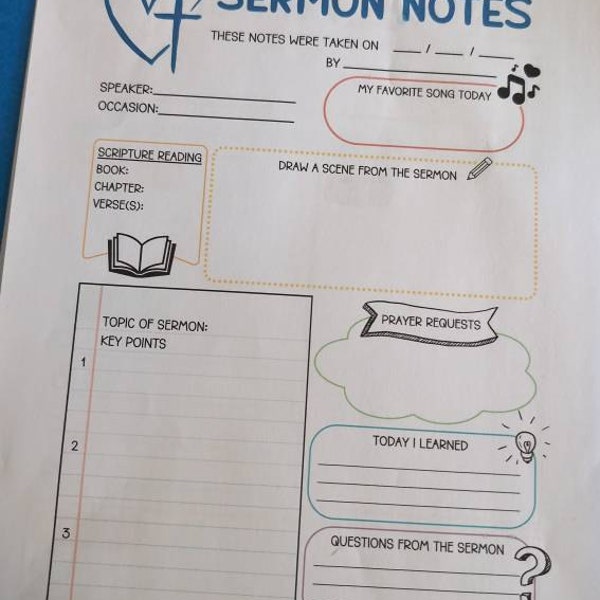 SERMON NOTES
THESE NOTES WERE TAKEN ON ___ / ___ / ___
BY
SPEAKER:
OCCASION:
MY FAVORITE SONG TODAY
SCRIPTURE READING
BOOK:
CHAPTER:
VERSE(S):
DRAW A SCENE FROM THE SERMON
TOPIC OF SERMON:
KEY POINTS
1
2
3
PRAYER REQUESTS
TODAY I LEARNED
QUESTIONS FROM THE SERMON